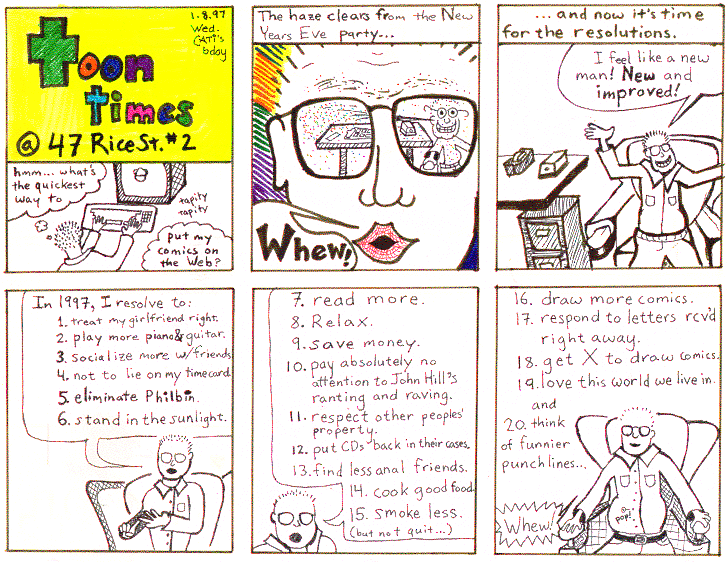 1.8.97
Wed.
CATI's
bday
toon
times
@ 47 Rice St. #2
hmm... what's
the quickest
way to
tapity
tapity
put my
comics on
the Web?
The haze clears from the New
Years Eve party...
Whew!
...and now it's time
for the resolutions.
I feel like a new
man! New and
improved!
In 1997, I resolve to:
1. treat my girlfriend right.
2. play more piano & guitar.
3. socialize more w/friends
4. not to lie on my timecard
5. eliminate Philbin.
6. stand in the sunlight.
7. read more.
8. Relax.
9. save money.
10. pay absolutely no
attention to John Hill's
ranting and raving.
11. respect other peoples'
property.
12. put CDs back in their cases.
13. find less anal friends.
14. cook good food
15. smoke less.
(but not quit...)
16. draw more comics.
17. respond to letters rcv'd
right away.
18. get X to draw comics.
19. love this world we live in.
and
20. think
of funnier
punch lines...
Whew!
pop!